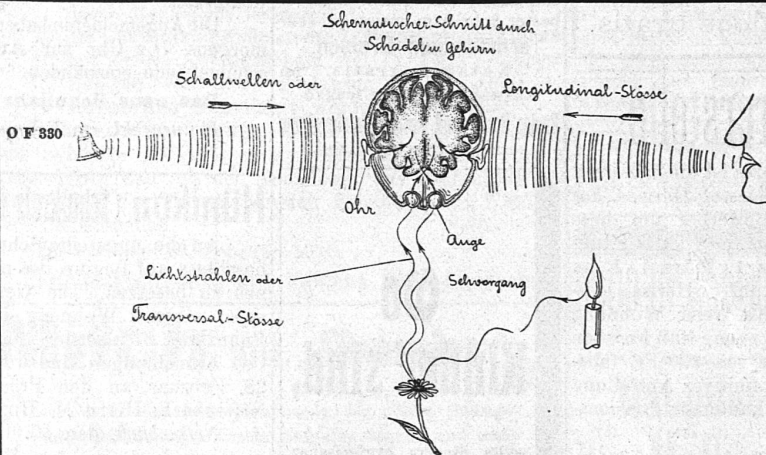 Schematischer Schnitt durch
Schädel u. Gehirn
Schallwellen oder
Longitudinal-Stösse
O F 330
Ohr
Auge
Lichtstrahlen oder
Sehvorgang
Transversal-Stösse